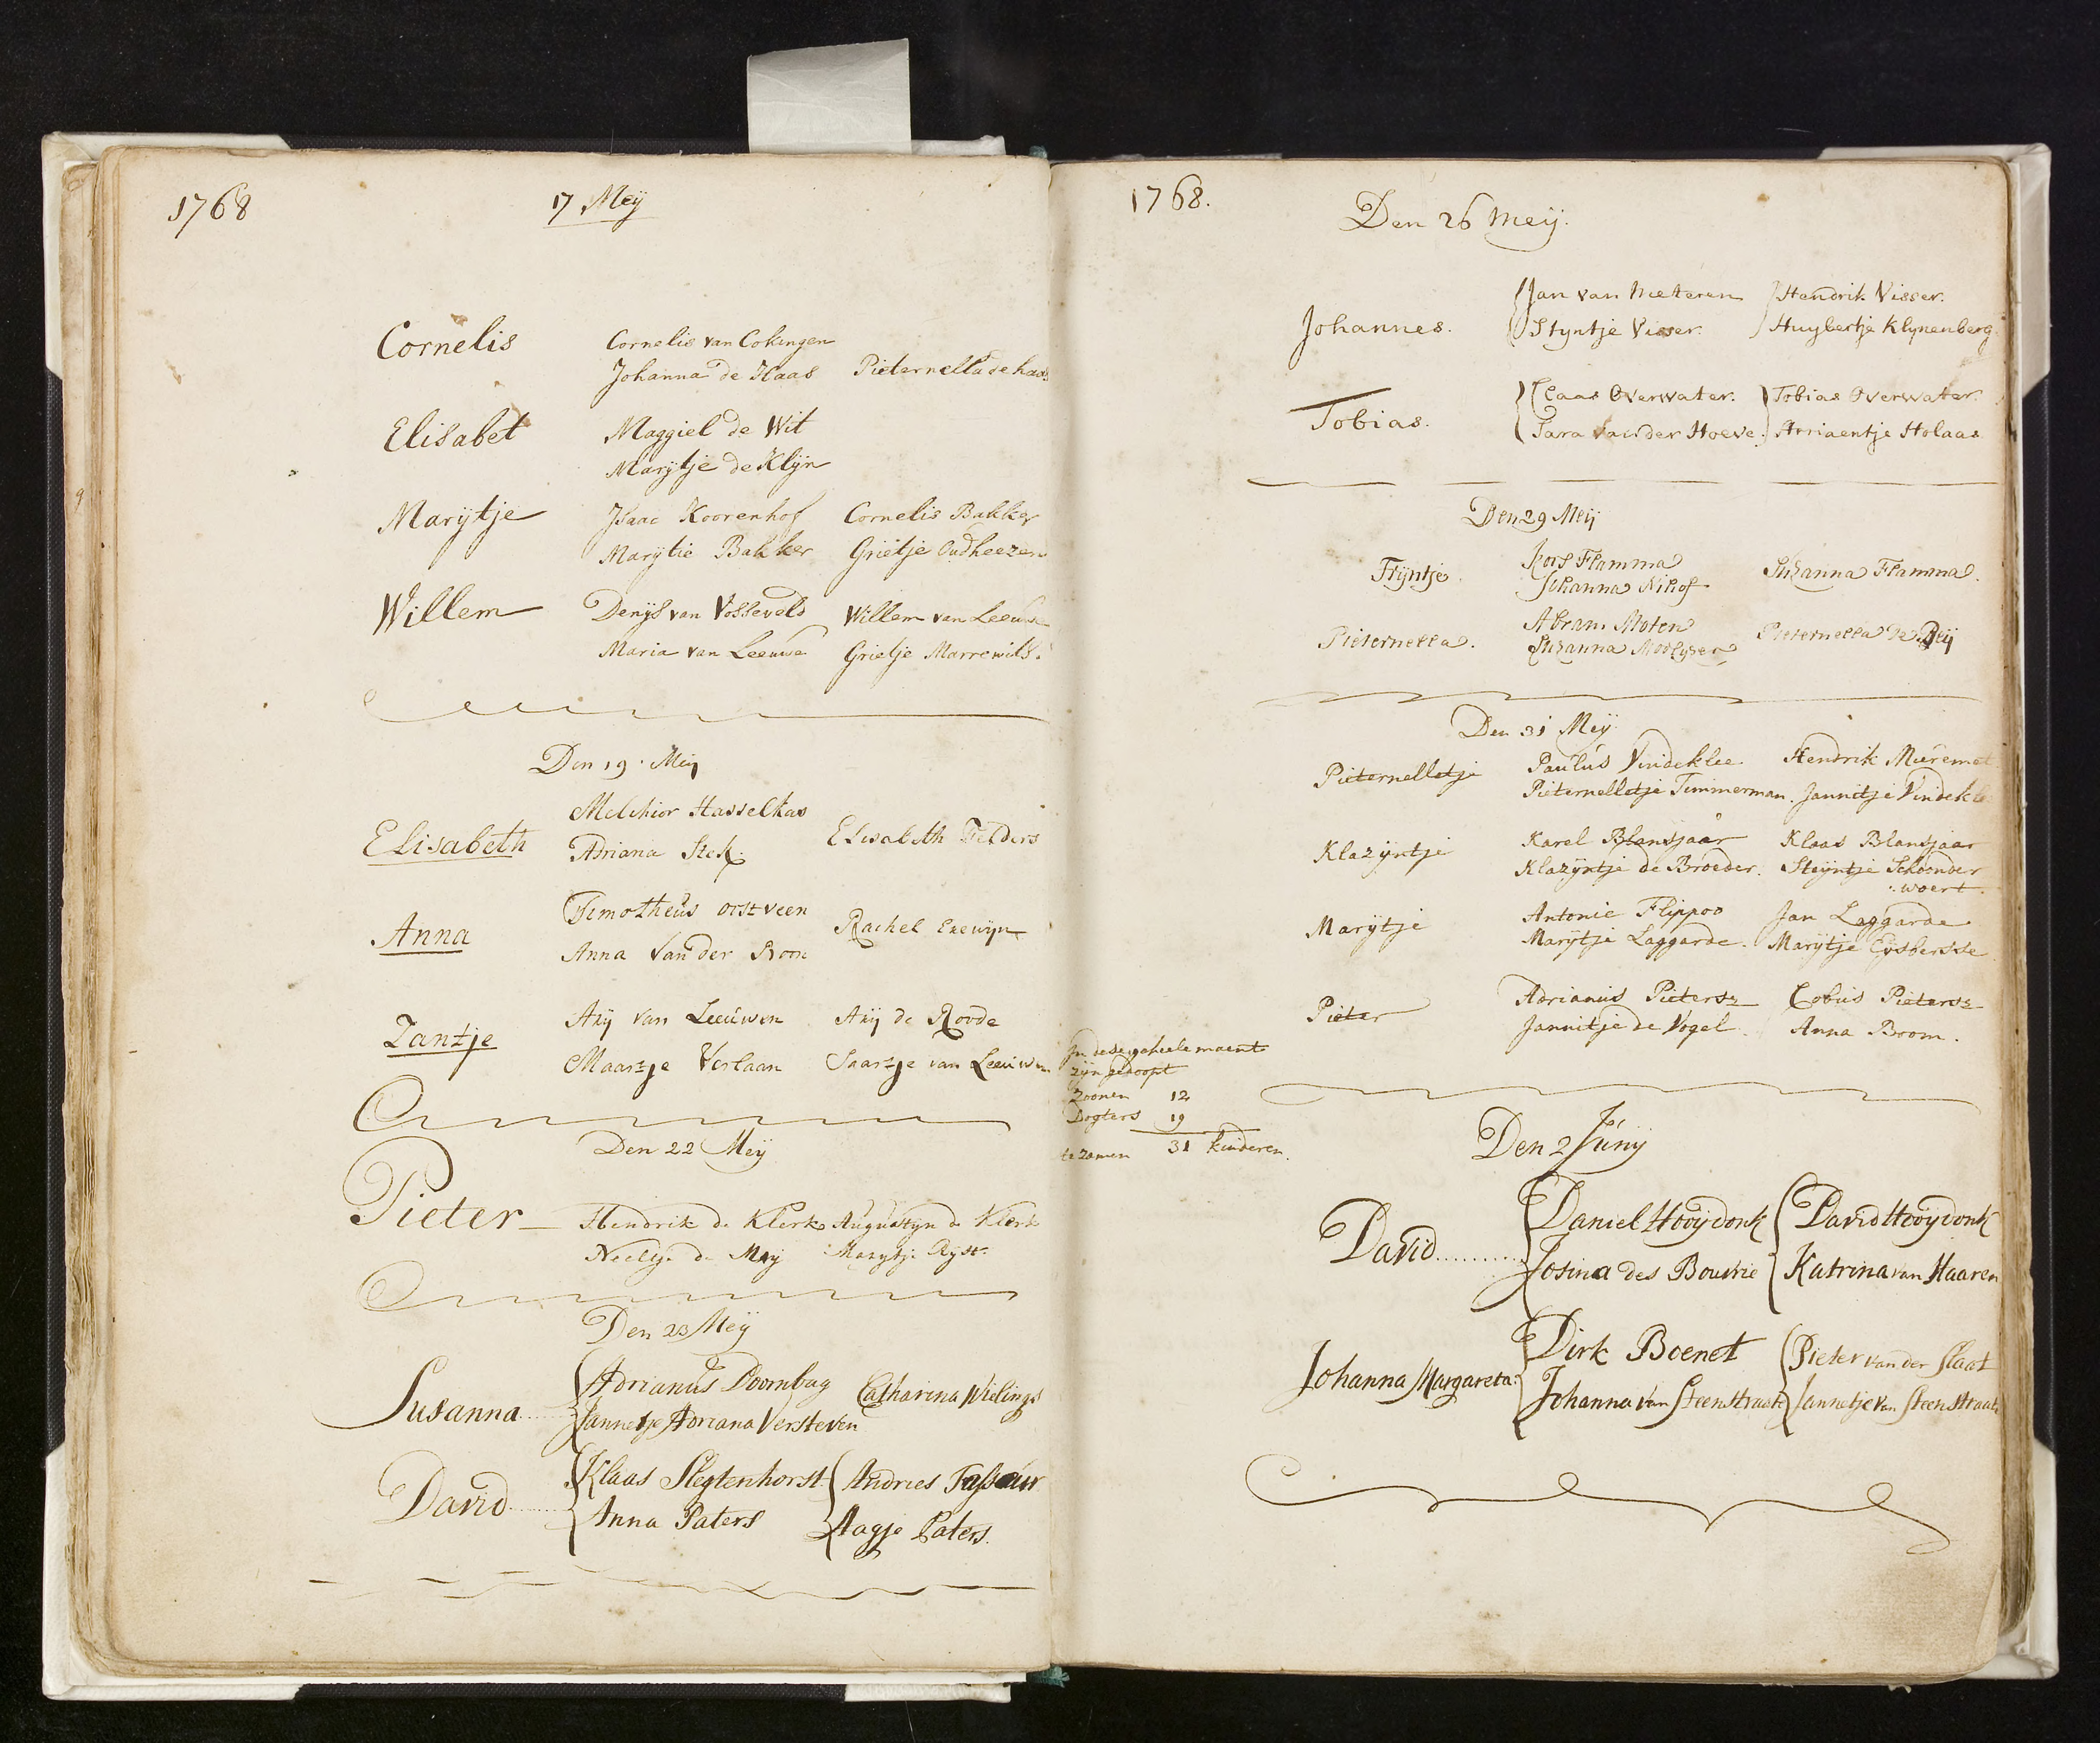 1768
17 Meij
Cornelis
Cornelis van Cokengen
Johanna de Haas Pieternella de haas
Elisabet
Maggiel de Wit
Marijtje de Klijn
Marijtje
Isaac Koorenhof Cornelis Bakker
Marijtie Bakker Grietje Oudheezen
Willem
Denijs van Vosseveld Willem van Leeuwe
Maria van Leeuwe Grietje Marrewils.
Den 19 Meij
Elisabeth
Melchior Hasselkas
Adriana Stek. Elisabeth Felders
Anna
Timotheus orstveen Rachel Enewijn
Anna Van der Roon
Zantje
Arij van Leeuwen Arij de Roode
Maartje Verlaan Saartje van Leeuwen
Den 22 Meij
Pieter
Hendrik de Klerk Augustijn de Klerk
Neeltje de Meij Marijtje Rijst
Den 23 Meij
Susanna
Adrianus Doornbag Catharina Wielings
Jannetje Adriana Versteven
David
Klaas Slegtenhorst Andries
Anna Paters Aagje Paters.
1768.
Den 26 Meij.
Johannes.
Jan van Meteren Hendrik Visser.
Styntje Visser. Huybertje Klynenberg.
Tobias.
Claas Overwater. Tobias Overwater.
Sara van der Hoeve. Arriaentje Holaas
Den 29 Meij
Trijntje.
Kors Flamma Suzanna Flamma.
Johanna Nihof
Pieternella.
Abram Moten Pieternella de Reij
Suzanna
Den 31 Meij
Pieternelletje
Paulus Vindeklee Hendrik Mieremet
Pieternelletje Timmerman. Jannitje Vindeklee
Klazijntje
Karel Blansjaar Klaas Blansjaar
Klazijntje de Broeder. Steijntje Schoonder
woert.
Marijtje
Antonie Flippoo Jan Laggarde
Marijtje Laggarde. Marijtje Eijsbersse
Pieter
Adrianus Pietersz Cobus Pietersz
Jannitje de Vogel. Anna Boom.
In dese geheele maent
zijn gedoopt
Zoonen 12
Dogters 19
te zamen 31 kinderen.
Den 2 Junij
David
Daniel Hooijdonk David Hooijdonk
Josina des Bouvrie Katrina van Haaren
Johanna Margareta.
Dirk Boenet Pieter van der Slaat
Johanna van Steenstraate Jannetje van Steenstraate